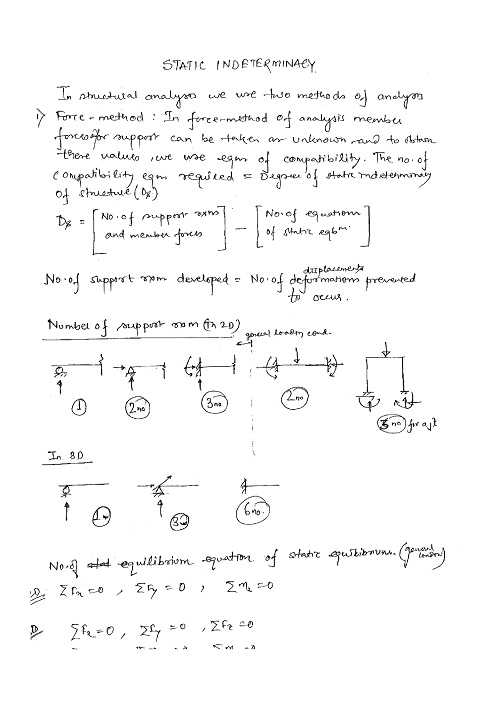 STATIC INDETERMINACY
In structural analysis we use two methods of analysis
1) Force-method : In force-method of analysis member
forces or support can be taken as unknown and to obtain
these values, we use eqns of compatibility. The no. of
compatibility eqns required = Degree of static indeterminacy
of structure (Ds)
Ds = [No. of support rxns and member forces] - [No. of equations of static eqbm]
displacements
No. of support rxn developed = No. of deformations prevented
to occur.
Number of support rxn (In 2D)
general loading cond.
1 2 no 3 no 2 no
3 no for a jt
In 3D
1 3 6 no.
No. of equilibrium equation of static equibriums. (general loading)
D ΣFx = 0 , ΣFy = 0 , ΣMz = 0
D ΣFx = 0 , ΣFy = 0 , ΣFz = 0